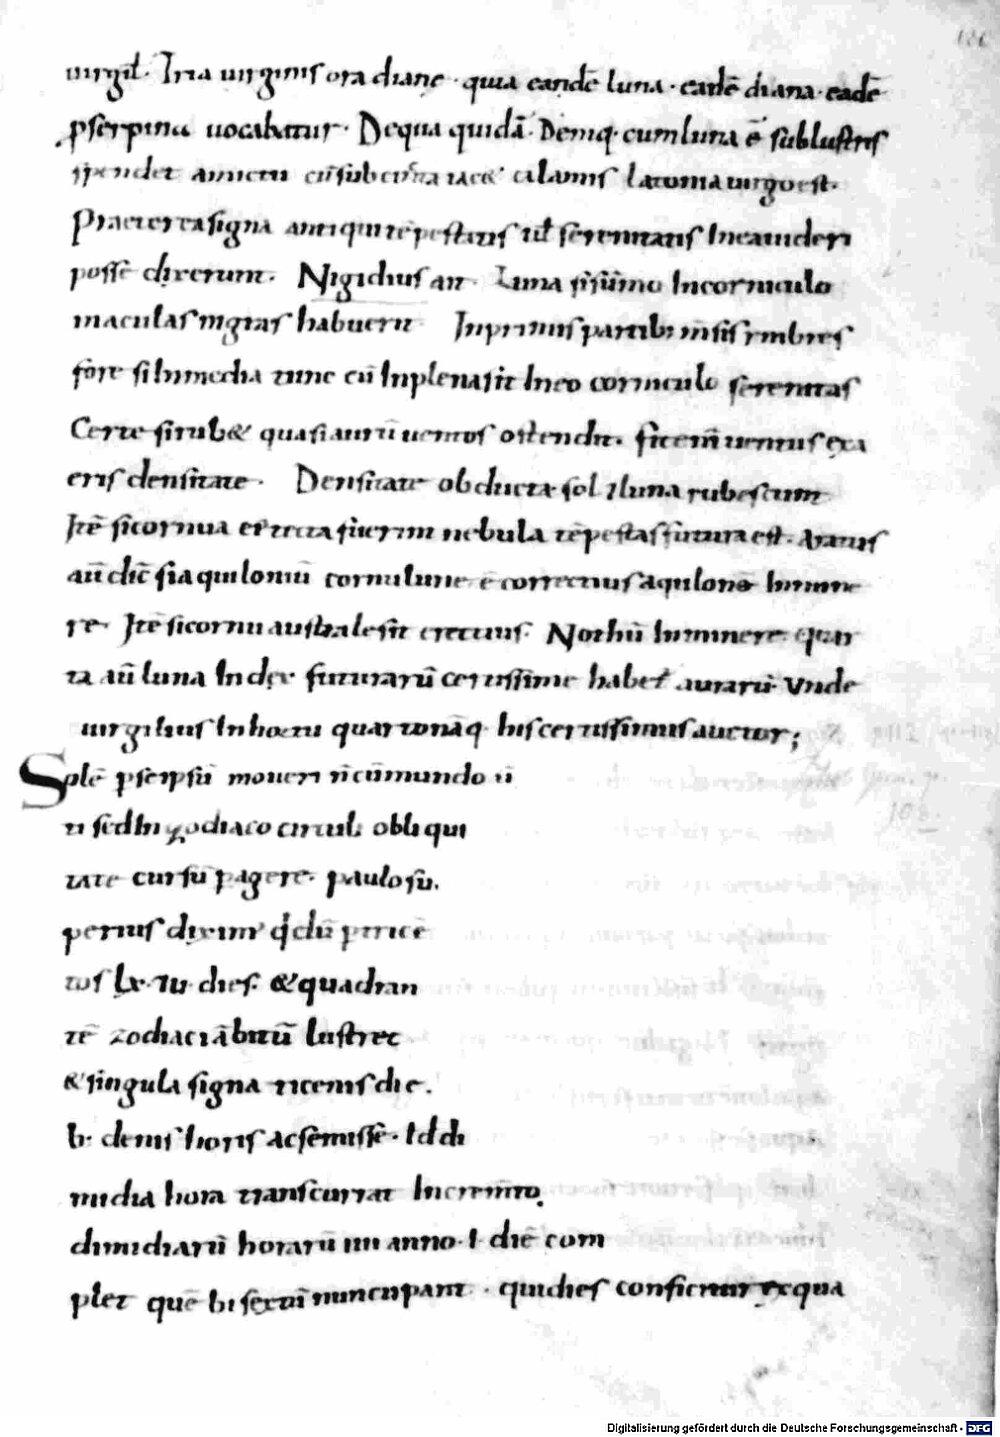 uirgil̄. Tria uirginis ora dianę. quia eandē luna. eadē diana. eadē
pserpina uocatur. De qua quidā. Deniq. cum luna ē sublustris
splendet amictu cū sub curuata iac& calamis latonia uirgo est.
Praeterea signa antiqui tēpestatis ul̄ serenitatis In ea uideri
posse dixerunt. Nigidius aīt. Luna si sūmo In corniculo
maculas nigras habuerit In primis partib; m̄sis ymbres
fore si In media tunc cū In plena sit In eo corniculo serenitas
Certe si rub& quasi aurū uentos ostendit. fit em̄ uentus ex a
eris densitate. Densitate obducta sol 7 luna rubescunt
Itē si cornua erecta fuerint nebula tēpestas futura est. Aratus
aū dic̄ si aquiloniū cornu lunę ē correctius aquilonē Inmine
re. Itē si cornu australe sit erectius. Nothū Inminere. quar
ta aū luna Index futurarū certissime habet aurarū. Unde
uirgilius In hortu quarto nāq. his certissimus auctor;
Solē p seipsū moueri n̄ cū mundo ū
ti sed In zodiaco circuli obliqui
tate cursū pagere. paulo sū.
perius diximꝰ qd dū p trice
tos lx. iu. dies. & quadran
tē zodiaci ābitū lustret
& singula signa tricenis die.
b. denis horis ac semisse. Id di
midia hora transcurrat Incremto
dimidiarū horarū iiii anno. I diē com
plet quē bisextū nuncupant. qui dies conficitur ex qua
Digitalisierung gefördert durch die Deutsche Forschungsgemeinschaft - DFG